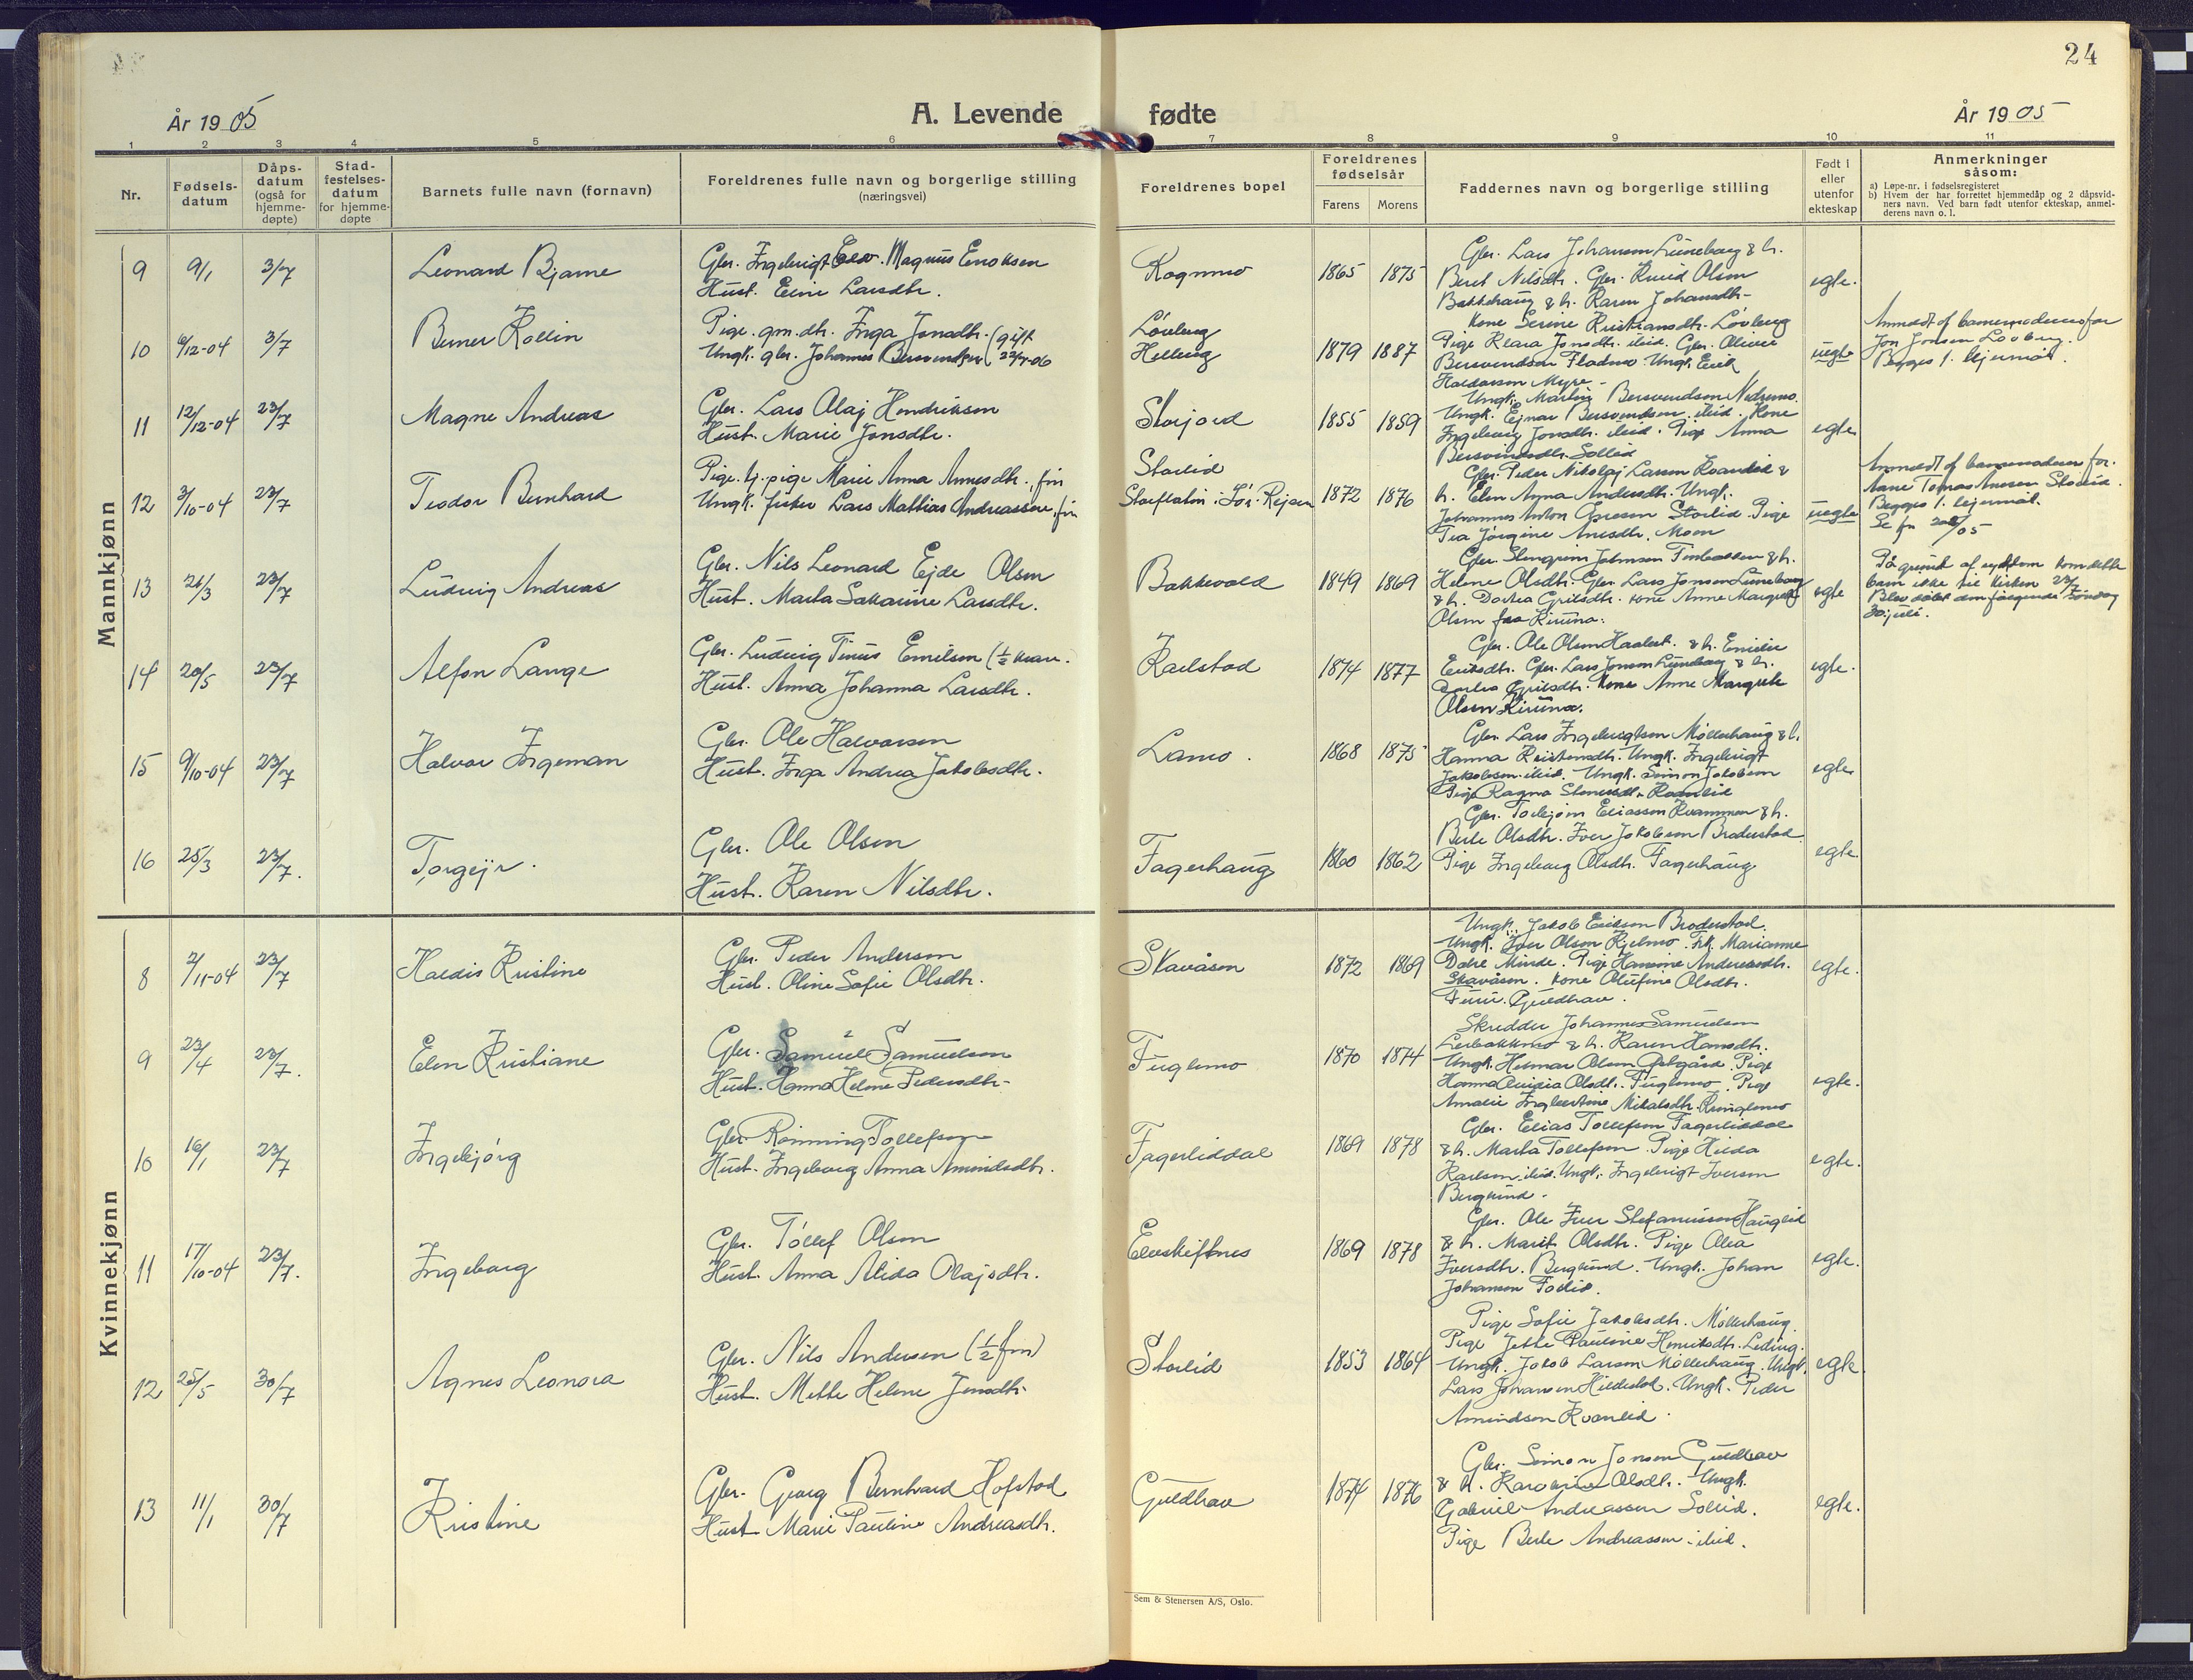 24
År 1905
A. Levende fødte
År 1905
1 2 3 4 5 6 7 8 9 10 11
Nr.
Fødsels-
datum
Dåps-
datum
(også for
hjemme-
døpte)
Stad-
festelses-
datum
for hjemme-
døpte
Barnets fulle navn (fornavn)
Foreldrenes fulle navn og borgerlige stilling
(næringsvei)
Foreldrenes bopel
Foreldrenes
fødselsår
Farens Morens
Faddernes navn og borgerlige stilling
Født i
eller
utenfor
ekteskap
Anmerkninger
såsom:
a) Løpe-nr. i fødselsregisteret
b) Hvem der har forrettet hjemmedåp og 2 dåpsvid-
ners navn. Ved barn født utenfor ekteskap, anmel-
derens navn o. l.
Mannkjønn
9 9/1 3/7 Leonard Bjarne
Gbr. Ingebrigt Magnus Enoksen
Hust. Eline Larsdtr.
Rognmo 1865 1875
Gbr. Lars Johansen Luneborg & h.
Beret Nilsdtr. Gbr. Knud Olsen
Bakkehaug & h. Karen Johansdtr.
egte.
10 6/12-04 3/7 Berner Kollin
Pige. gm. dtr. Inga Jonsdtr. (gift
Ungk. gbr. Johannes Bersvendsen (22/7-06
Løvberg
1879 1887
Kone Serine Kristiansdtr. Løvberg
Pige Klara Jonsdtr. ibid. Gbr. Oliver
Bersvendsen Fladmo. Ungk. Erik
Haldorsen Myre
uegte
Anmeldt af barnemoderens far
Jon Jonsen Løvberg.
Begges 1. lejermål.
11 12/12-04 23/7 Magne Andreas
Gbr. Lars Olaj Hendriksen
Hust. Marie Jonsdtr.
Storjord 1855 1859
Ungk. Martin Bersvendsen Nedremo.
Ungk. Ejnar Bersvendsen. ibid. Kone
Ingeborg Jonsdtr. ibid. Pige Anna
Bersvendsdtr. Sollid
egte
12 3/10-04 23/7 Teodor Bernhard
Pige. tj. pige Marie Anna Arnesdtr., fin
Ungk. fisker Lars Mattias Andreassen, fin
Storlid
1872 1876
Gbr. Peder Nikolaj Larsen Kvanlid &
h. Elen Anna Andersdtr. Ungk.
Johannes Anton Storlid. Pige
Tea Jørgine Arnesdtr. Moen
uegte
Anmeldt af barnemoderens far.
Arne Tomas Storlid.
Begges 1. lejermål.
13 26/3 23/7 Ludvig Andreas
Gbr. Nils Leonard Ejde Olsen
Hust. Marta Sakarine Larsdtr.
Bakkevold 1849 1869
Gbr. Stengrim Johnsen & h.
Helene Olsdtr. Gbr. Lars Jonsen Luneborg
& h. Dortea Grilsdtr. Kone Anne Margrete
Olsen fra Kiruna.
egte
På grund af sygdom kom dette
barn ikke til kirken 23/7
Blev døbt den følgende søndag
30. juli.
14 20/5 23/7 Alfon Lange
Gbr. Ludvig Tinus Emilsen (½ kvæn.
Hust. Anna Johanna Larsdtr.
Karlstad 1874 1877
Gbr. Ole Olsen & h. Emilie
Eriksdtr. Gbr. Lars Jonsen Luneborg & h.
Dortea Grilsdtr. Kone Anne Margrete
Olsen Kiruna.
egte.
15 9/10-04 23/7 Halvor Ingeman
Gbr. Ole Halvorsen
Hust. Inga Andrea Jakobsdtr.
Lamo. 1868 1875
Gbr. Lars Ingebrigtsen Møllerhaug & h.
Hanna Kristensdtr. Ungk. Ingebrigt
Jakobsen. ibid. Ungk. Simon Jakobsen
Pige Ragna
egte
16 25/3 23/7. Torgejr.
Gbr. Ole Olsen
Hust. Karen Nilsdtr.
Fagerhaug 1860 1862
Gbr. Torbjørn Eliassen Kvammen & h.
Berte Olsdtr. Iver Jakobsen Broderstad
Pige Ingeborg Olsdtr. Fagerhaug
egte
Kvinnekjønn
8 2/11-04 23/7 Haldis Kristine
Gbr. Peder Andersen
Hust. Oline Sofie Olsdtr.
Skavåsen 1872 1869
Ungk. Jakob Eriksen Broderstad.
Ungk. Iver Olsen Kjelmo. Frk. Marianne
Dahl Minde. Pige Hansine Andersdtr.
Skavåsen. Kone Olufine Olsdtr.
Furu. Guldhav.
egte.
9 23/4 23/7. Elen Kristiane
Gbr. Samuel Samuelsen
Hust. Hanna Helene Pedersdtr.
Fuglemo 1870 1874
Skrædder Johannes Samuelsen
& h. Karen Hansdtr.
Ungk. Helmar Olsen Pige
Hanna Olsdtr. Fuglemo. Pige
Amalie Ingebertine Mikalsdtr. Kongsmo
egte.
10 16/1 23/7 Ingebjørg
Gbr. Rønning Tollefsen
Hust. Ingeborg Anna Amundsdtr.
Fagerliddal 1869 1878
Gbr. Elias Tollefsen Fagerliddal
& h. Marta Tollefsen. Pige Hilda
Karlsen. ibid. Ungk. Ingebrigt Iversen
Berglund.
egte.
11 17/10-04 23/7. Ingeborg
Gbr. Tollef Olsen
Hust. Anna Alida Olajsdtr.
Elveskiftnes 1869 1878
Gbr. Ole Iver Stefanussen Hauglid
& h. Marit Olsdtr. Pige Olea
Iversdtr. Berglund. Ungk. Johan
Johansen Foslid.
egte.
12 25/5 30/7 Agnes Leonora
Gbr. Nils Andersen (½ fin)
Hust. Mette Helene Jensdtr.
Storlid 1853 1864
Pige Sofie Jakobsdtr. Møllerhaug.
Pige Jette Pauline Henriksdtr.
Ungk. Jakob Larsen Møllerhaug. Ungk.
Lars Johansen Ungk. Peder
Amundsen Kvanlid.
egte
13 11/1 30/7 Kristine
Gbr. Georg Bernhard Hofstad
Hust. Marie Pauline Andreasdtr.
Guldhav 1874 1876
Gbr. Simon Jonsen Guldhav
& h. Karoline Olsdtr. Ungk.
Gabriel Andreassen Sollid.
Pige Berte Andreassen. ibid.
egte.
Sem & Stenersen A/S, Oslo.